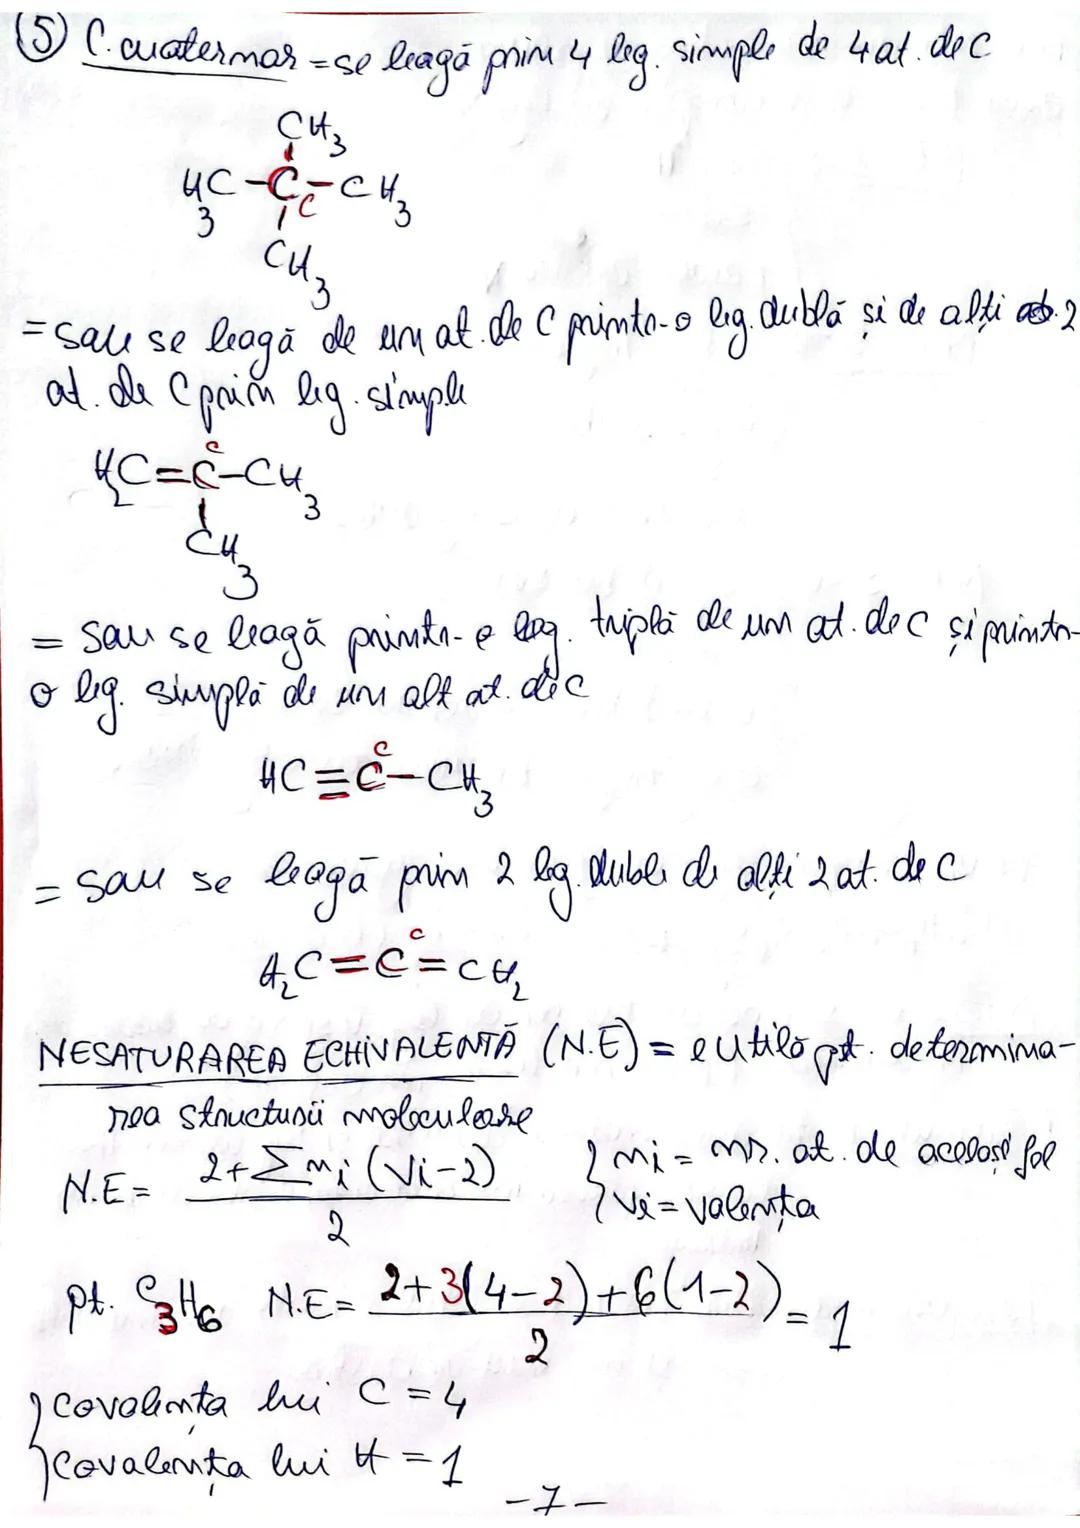 ⑤ C. cuaternar = se leagă prin 4 leg. simple de 4 at. de C
CH3
H3C-C-CH3
c
CH3
= sau se leagă de un at. de C printr-o leg. dublă și de alți 2
at. de C prin leg. simple
c
H2C=C-CH3
CH3
= sau se leagă printr-o leg. triplă de un at. de C și printr-
o leg. simplă de un alt at. de C
c
HC≡C-CH3
= sau se leagă prin 2 leg. duble de alți 2 at. de C
c
H2C=C=CH2
NESATURAREA ECHIVALENTĂ (N.E) = e utilă pt. determina-
rea structurii moleculare
N.E = (2+Σni(Vi-2))/2 { ni = nr. at. de același fel
Vi = valența
pt. C3H6 N.E = (2+3(4-2)+6(1-2))/2 = 1
{ covalența lui C = 4
covalența lui H = 1
-7-